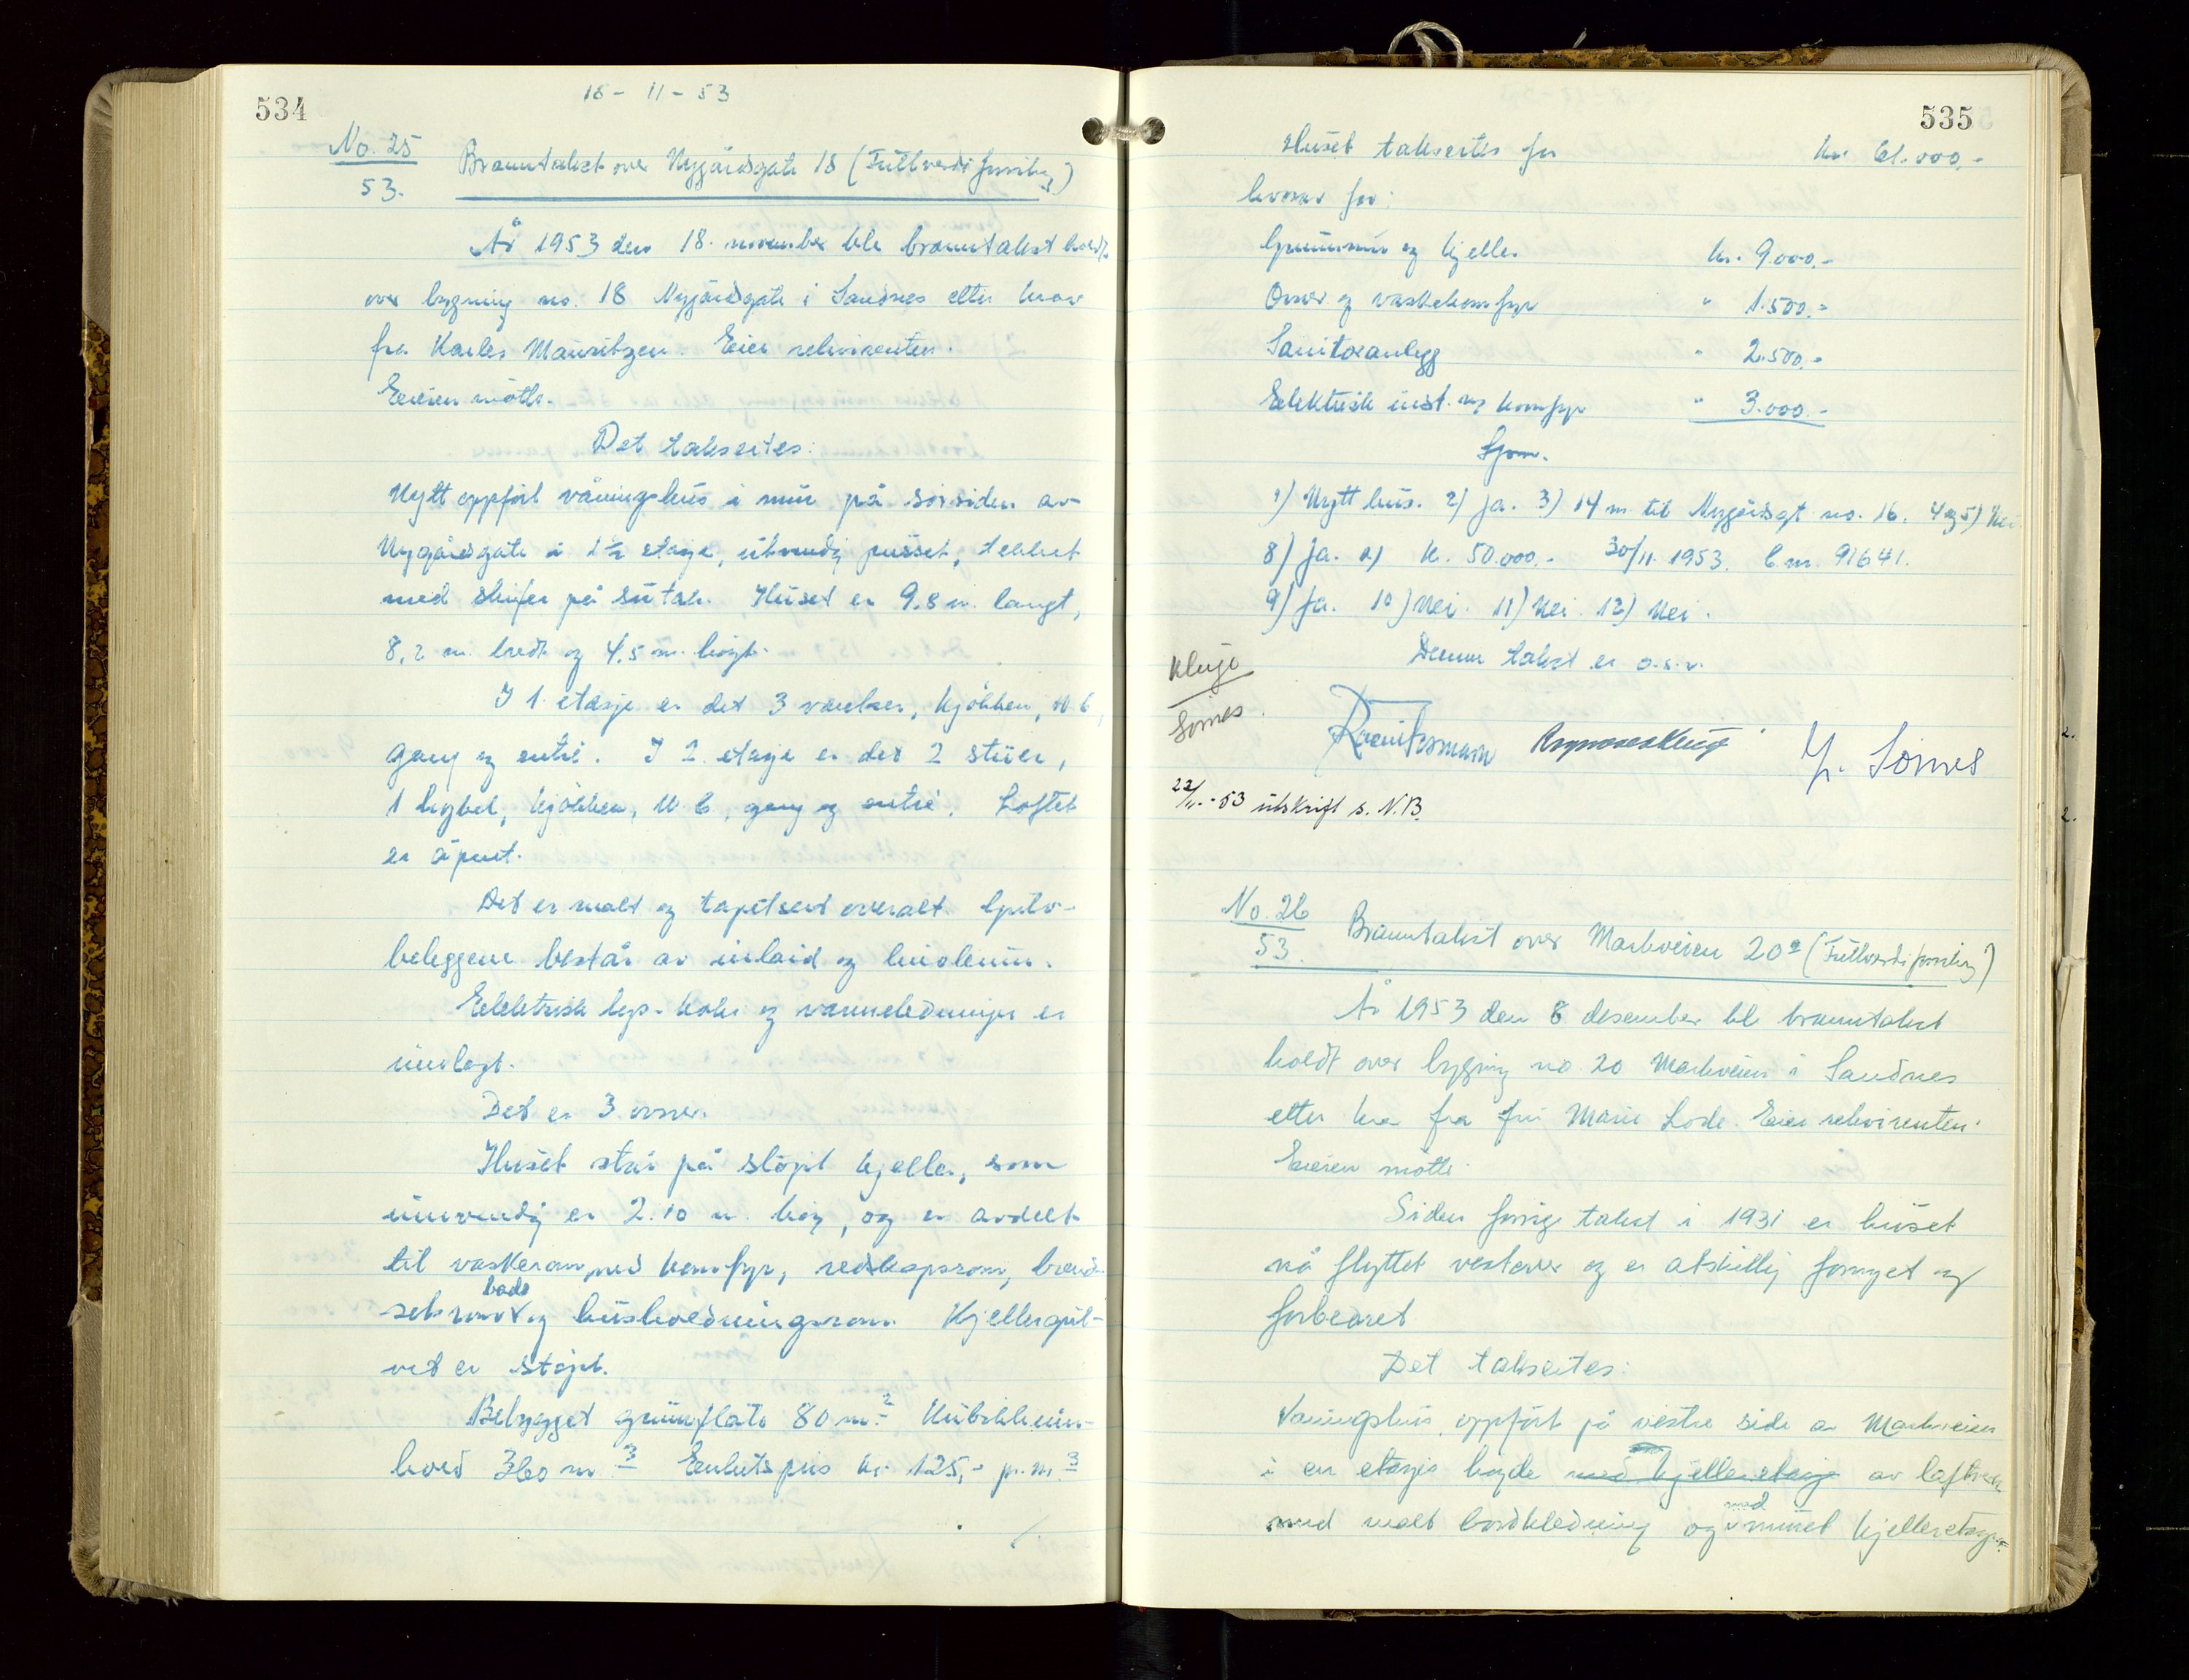 534
18 - 11 - 53
No. 25
53.
Branntakst over Nygårdsgate 18 (Fullverdiforsikring)
År 1953 den 18. november ble branntakst holdt
over bygning no. 18 Nygårdsgate i Sandnes etter krav
fra Karles Mauritzen. Eier rekvirenten.
Eieren møtte.
Det takseres:
Nytt oppført våningshus i mur på sørsiden av
Nygårdsgate i 1½ etasje, utvendig pusset, tekket
med skifer på sutak. Huset er 9,8 m. langt,
8,2 m. bredt og 4,5 m. høigt.
I 1. etasje er det 3 værelser, kjøkken, W C,
gang og entré. I 2. etasje er det 2 stuer,
1 hybel, kjøkken, W C, gang og entré. Loftet
er åpent.
Det er malt og tapetsert overalt. Gulv-
beleggene består av inlaid og linoleum.
Eelektrisk lys- koke og vannledninger er
innlagt.
Det er 3 ovner.
Huset står på støpt kjeller, som
innvendig er 2.10 m. høy, og er avdelt
til vaskerom med komfyr, redskapsrom, brend-
selsrom bad og husholdningsrom. Kjellergul-
vet er støpt.
Bebygget grunnflate 80 m.² Kubikkinn-
hold 360 m³ Enhetspris kr. 125,- pr. m.³
535
Huset takseres for kr. 61.000.-
hvorav for:
Grunnmur og kjeller kr. 9.000.-
Ovner og vaskekomfyr " 1.500.-
Sanitæranlegg " 2.500.-
Eelektrisk inst. og komfyr " 3.000.-
Spm.
1) Nytt hus. 2) Ja. 3) 14 m. til Nygårdsgt no. 16. 4 og 5) Nei
8) Ja. a) k. 50.000.- 30/11. 1953. 91641.
9) Ja. 10) Nei. 11) Nei. 12) Nei.
Denne takst er o.s.v.
Kluge
Somes.
Y. Somes
22/11-53 utskrift s. N.B.
No. 26
53.
Branntakst over Markveien 20a (Fullverdiforsikring)
År 1953 den 8 desember ble branntakst
holdt over bygning no 20 Markveien i Sandnes
etter krav fra fru Marie Lode. Eier rekvirenten.
Eieren møtte.
Siden forrige takst i 1931 er huset
nå flyttet vestover og er atskillig fornyet og
forbedret
Det takseres:
Våningshus, oppført på vestre side av Markveien
i en etasjes høyde med kjelleretasje av laftverk
med malt bordkledning og med muret kjelleretasje.